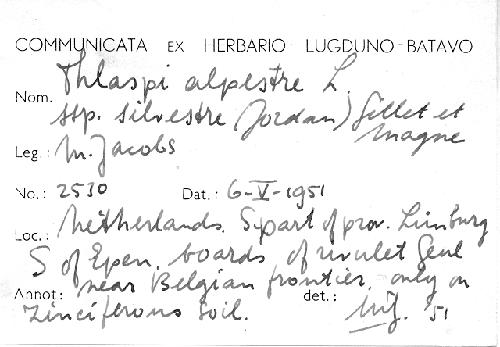 COMMUNICATA EX HERBARIO LUGDUNO-BATAVO
Nom. Thlaspi alpestre L.
ssp. silvestre (Jordan) Gillet et
Magne
Leg.: M. Jacobs
No.: 2530 Dat.: 6-V-1951
Loc.: Netherlands. S part of prov. Limburg
S of Epen, boards of rivulet Geul
near Belgian frontier, only on
Annot: zinciferous soil. det.: MJ. '51